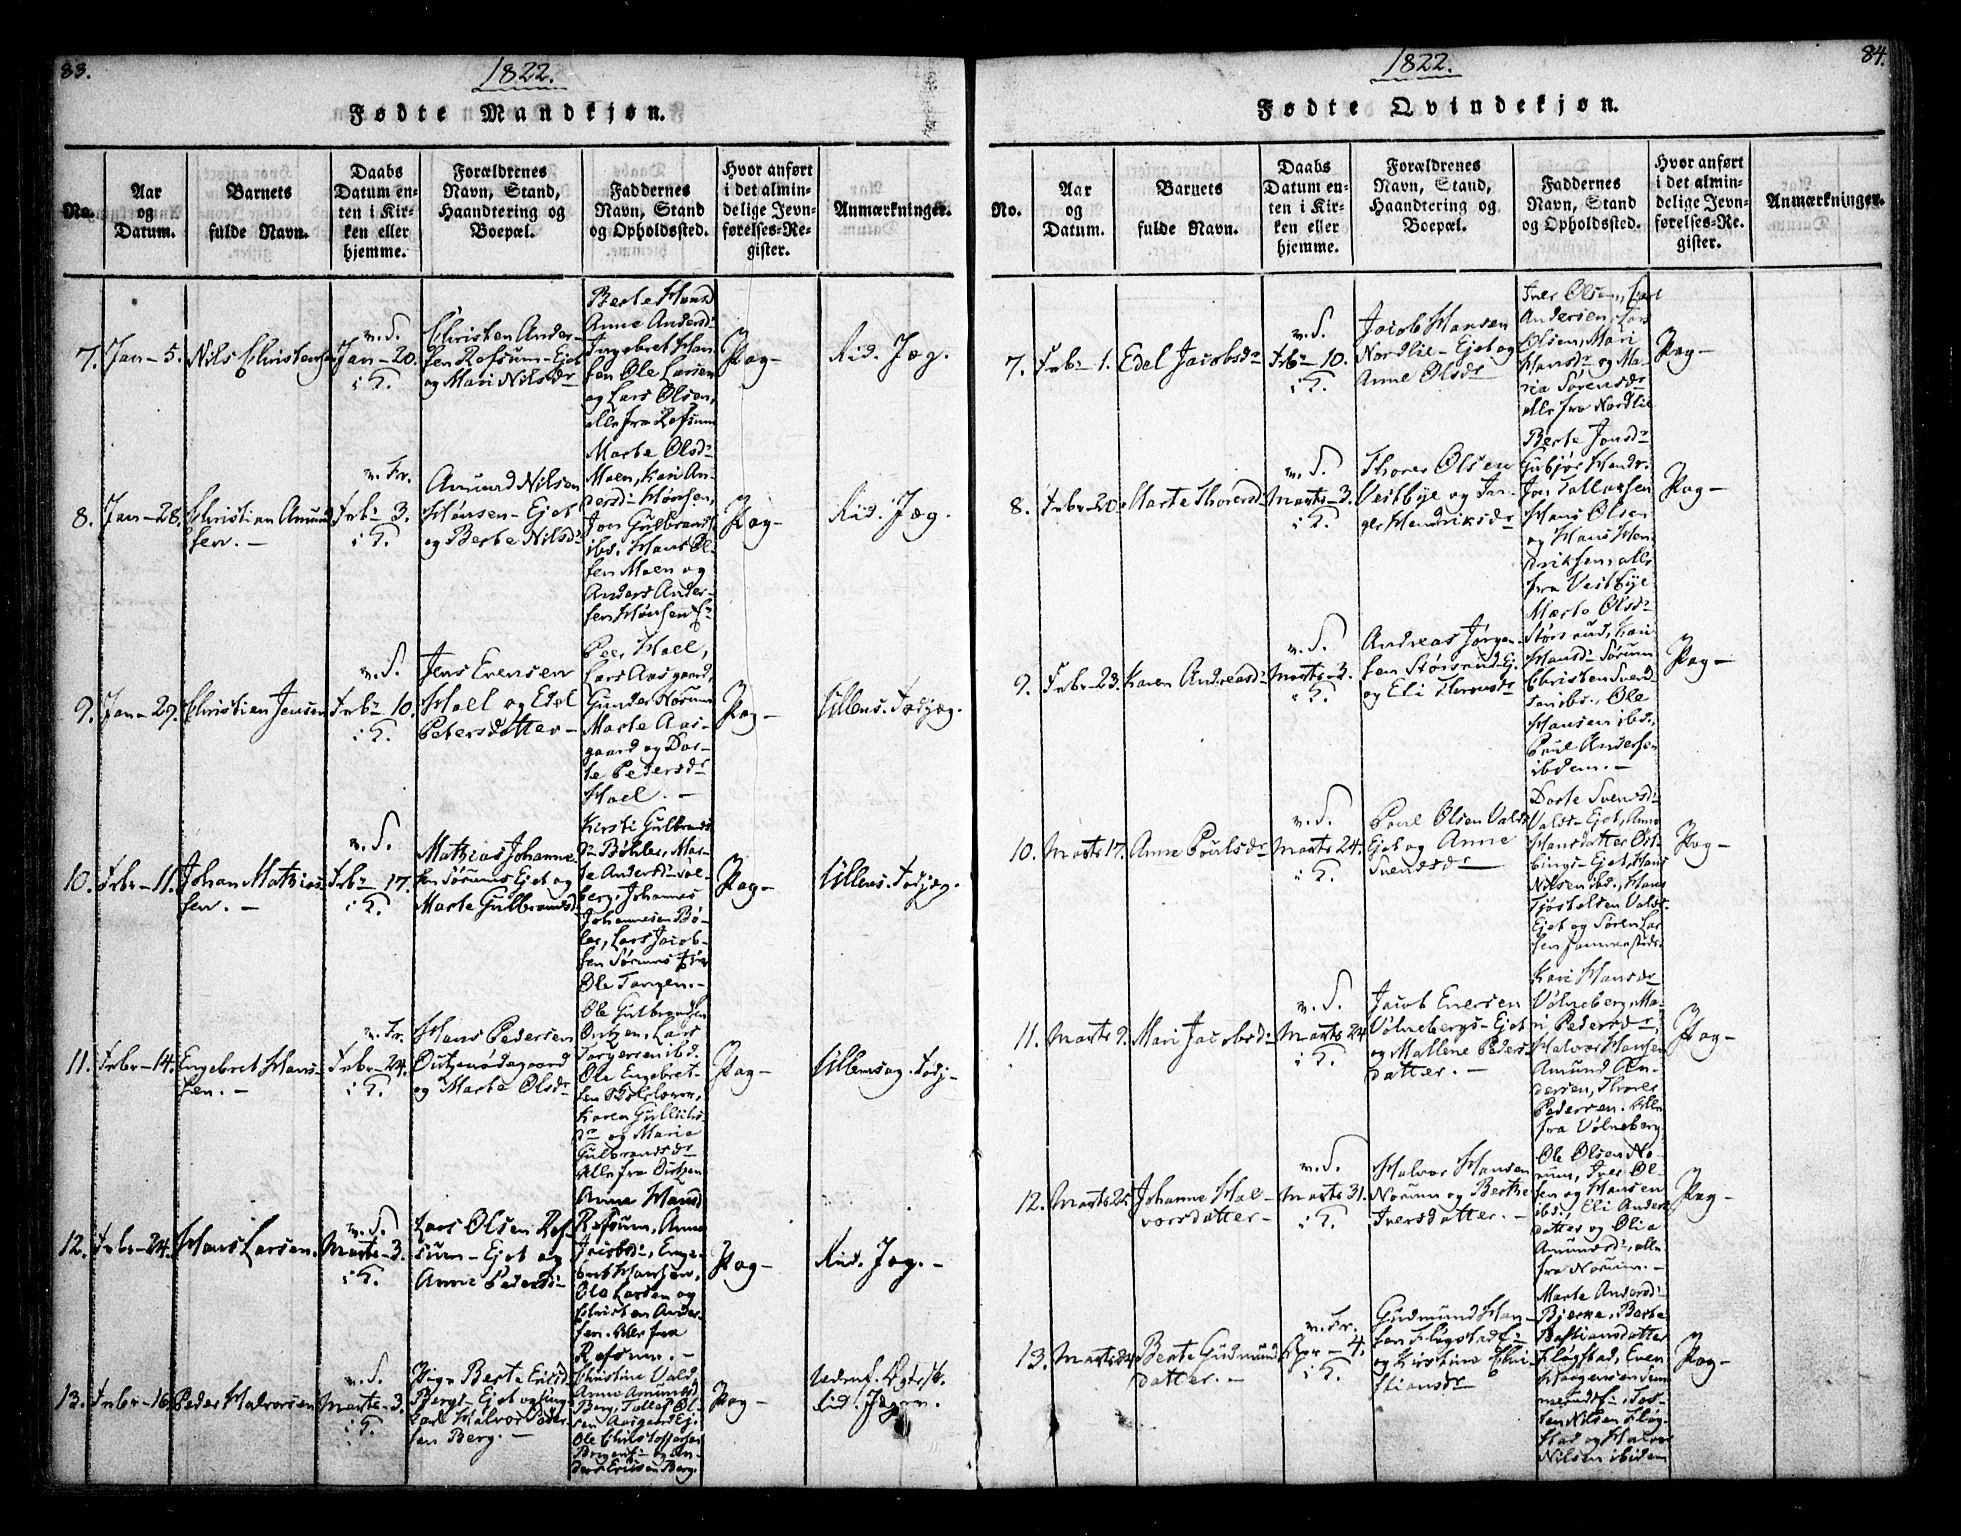 83.
1822.
Fødte Mandkjøn.
No.
Aar
og
Datum.
Barnets
fulde Navn.
Daabs
Datum en-
ten i Kir-
ken eller
hjemme.
Forældrenes
Navn, Stand,
Haandtering og
Boepæl.
Faddernes
Navn, Stand
og Opholdssted.
Hvor anført
i det almin-
delige Jevn-
førelses-Re-
gister.
Anmærkninger.
7. Jan - 5.
Nils Christensen
Jan - 20.
Christen Ander-
sen Refsum - Ejet
og Mari Nilsdr
Berte Hansd
Anne Andersdr
Ingebret Han-
sen Ole Larsen
og Lars Olsen,
alle fra Refsum
Pag -
Rid. Jæg.
8. Jan - 28.
Christian Amund
sen. -
v. Fr.
Febr 3.
Amund Nilsen
Hønsen - Ejet
og Berte Nilsdr
Marte Olsdr
Moen, Kari An-
dersdr Hønsen,
Jon Gulbrands
ibd. Hans Ol-
sen Moen og
Anders Ander-
sen Hønsen
Pag -
Rid. Jæg.
9. Jan - 29.
Christian Jensen
v. S.
Febr 10.
Jens Evensen
Hoel og Edel
Petersdatter -
Peer Hoel,
Lars Aasgaard,
Gunder Norum
Marte Aas-
gaard og Dor-
te Pedersdr
Hoel. -
Pag -
Ullens. Fodjæg.
10. Febr - 11.
Johan Mathias-
sen. -
v. S.
Febr 17.
Mathias Johanne-
sen Sørums Ejet og
Marte Gulbrandsd
Kirsti Gulbrands
dr Bøhler, Mar-
te Andersdr Sol-
berg, Johannes
Johannesen Bø-
ler, Lars Jacob-
sen Sørums
Ole Torgen. -
Pag -
Ullens. Fodjæg.
11. Febr - 14.
Engebret Hans-
sen. -
v. Fr.
Febr - 24.
Hans Pedersen
og Marte Olsdr
Ole Gulbrandsen
Lars
Torgersen ibd.
Ole Engebret-
sen
Karen
dr og Maria
Gulbrandsdr
Alle fra
Pag -
Ullensag. Fodj-
12. Febr - 24.
Hans Larsen.
v. S.
Marts - 3.
Lars Olsen Ref-
sum - Ejet og
Anne Pedersdr
Anne Hansd
Refsum, Anne
Jacobsdr, Enge-
bret Hansen,
Ole Larsen og
Christen Ander-
sen. Alle fra
Refsum. -
Pag -
Rid. Jæg. -
13. Febr - 16.
Peder Halvorsen
v. S.
Marts - 3.
Pige Berte Erichsd
Bergs - Ejet og Ung-
karl Halvor Peder-
sen Berg. -
Christine Vald
Anne Amundsd
Berg, Tollef Ol-
sen Aasgaard Ej.
Ole Christoffersen
og An-
ders Ericsen Berg.
Pag -
Rid. Jægern.
84.
1822.
Fødte Qvindekjøn.
No.
Aar
og
Datum.
Barnets
fulde Navn.
Daabs
Datum en-
ten i Kir-
ken eller
hjemme.
Forældrenes
Navn, Stand,
Haandtering og
Boepæl.
Faddernes
Navn, Stand
og Opholdssted.
Hvor anført
i det almin-
delige Jevn-
førelses-Re-
gister.
Anmærkninger.
7. Febr 1.
Edel Jacobsdr
v. S.
Febr 10.
Jacob Hansen
Nordlie - Ejet og
Anne Olsdr
Iver Olsen, Carl
Andersen, Lars
Olsen, Mari
Hansdr og Ma-
ria Sørensdr
alle fra Nordlie
Pag -
8. Febr - 20.
Marte Thorersdr
v. S.
Marts - 3.
Thorer Olsen
Vestbye og In-
ger Hendriksdr
Berte Jonsdr
Gubjør Hendr.
Jon Tollefsen
Hans Olsen
og Hans Hen-
driksen, alle
fra Vestbye
Pag -
9. Febr - 23.
Karen Andreasdr
v. S.
Marts - 3.
Andreas Jørgen-
sen Størsrud Ej.
og Eli
Marte Olsdr
Størsrud, Kari
Hansdr Sørum
Christen Svend-
sen ibd., Ole
Hansen ibd.,
Poul Andersen
ibdem. -
Pag -
10. Marts 17.
Anne Poulsdr
v. S.
Marts 24.
Poul Olsen Valds
Ejet og Anne
Svendsdr -
Dorte Svendsdr
Valds - Ejet, Anne
Hansdatter Øst-
bings - Ejet, Hans
Nilsen ibd., Hans
Tjøstelsen Valds-
Ejet og Søren Lar-
sen
Pag -
11. Marts 9.
Mari Jacobsd
v. S.
Marts 24
Jacob Eversen
Vølnebergs - Ejet
og Mallene Peders-
datter. -
Kari Hansdr
Vølneberg, Ma-
ri Pedersdr,
Halvor Hansen
Amund An-
dersen, Thorer
Pedersen. Alle
fra Vølneberg
Pag -
12. Marts 25.
Johanne Hal-
vorsdatter -
v. S.
Marts 31.
Halvor Hansen
Norum og Berthe
Iversdatter. -
Ole Olsen No-
rum, Iver Ol-
sen og Hansen
ibd., Eli Anders
datter og Olia
Amundsdr, alle
fra Norum. -
Pag -
13. Marts 24
Berte Gudmunds
datter. -
v. Fr.
Apr - 4.
Gudmund Han-
sen Fløgstad
og Kirstine Chri-
stiansdr
Marte Andersdr
Bjerke, Berte
Bastiansdatter
Fløgstad, Even
Nilsen Fløg-
stad og Halvor
Nilsen ibidem
Pag -